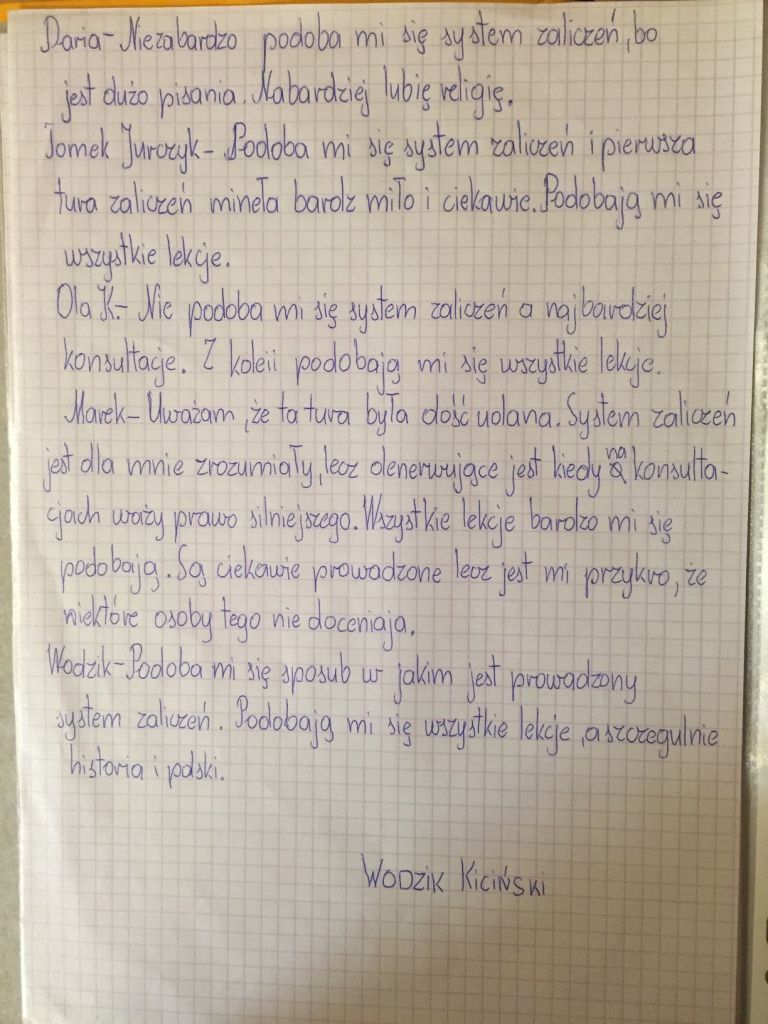 Daria-Niezabardzo podoba mi się system zaliczeń, bo
jest dużo pisania. Nabardziej lubię religię.
Tomek Jurczyk- Podoba mi się system zaliczeń i pierwsza
tura zaliczeń mineła bardz miło i ciekawie. Podobają mi się
wszystkie lekcje.
Ola K.- Nie podoba mi się system zaliczeń a najbardziej
konsultacje. Z koleii podobają mi się wszystkie lekcje.
Marek- Uważam, że ta tura była dość udana. System zaliczeń
jest dla mnie zrozumiały, lecz denerwujące jest kiedy na konsulta-
cjach waży prawo silniejszego. Wszystkie lekcje bardzo mi się
podobają. Są ciekawie prowadzone lecz jest mi przykro, że
niektóre osoby tego nie doceniają.
Wodzik-Podoba mi się sposub w jakim jest prowadzony
system zaliczeń. Podobają mi się wszystkie lekcje, a szczegulnie
historia i polski.
WODZIK KICIŃSKI